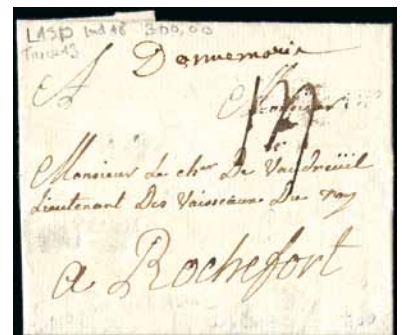 L1SD Ind 18 300,00
Taxe 13
A Dannemarie
Monsieur
Monsieur Le cher De Vaudreüil
Lieutenant Des Vaisseaux Du roy
a Rochefort